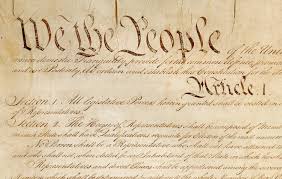 We the People of the Unit
insure domestic Tranquility, provide for the common defence, promote
and our Posterity, do ordain and establish this Constitution for the
Article. I.
Section. 1. All legislative Powers herein granted shall be vested in a
of Representatives.
Section. 2. The House of Representatives shall be composed of Members
in each State shall have Qualifications requisite for Electors of the most numerous
No Person shall be a Representative who shall not have attained
and who shall not, when elected, be an Inhabitant of that State in which he
Representatives and direct Taxes shall be apportioned among the several